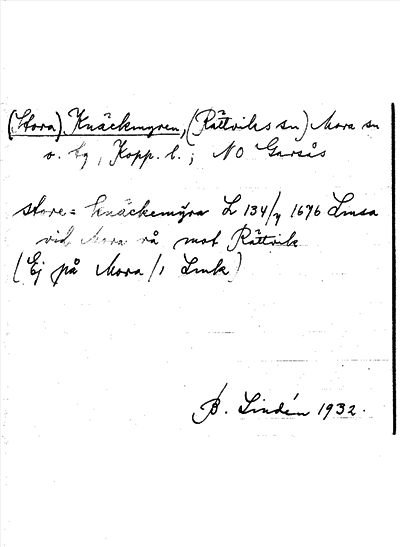 (Stora) Knäckmyren, (Rättviks sn) Mora sn
o. tg, Kopp. l.; NO Garsås
store = knäckemÿra L 134/7 1676 Lmsa
vid Mora rå mot Rättvik
(Ej på Mora /1 Lmk)
B. Lindén 1932.